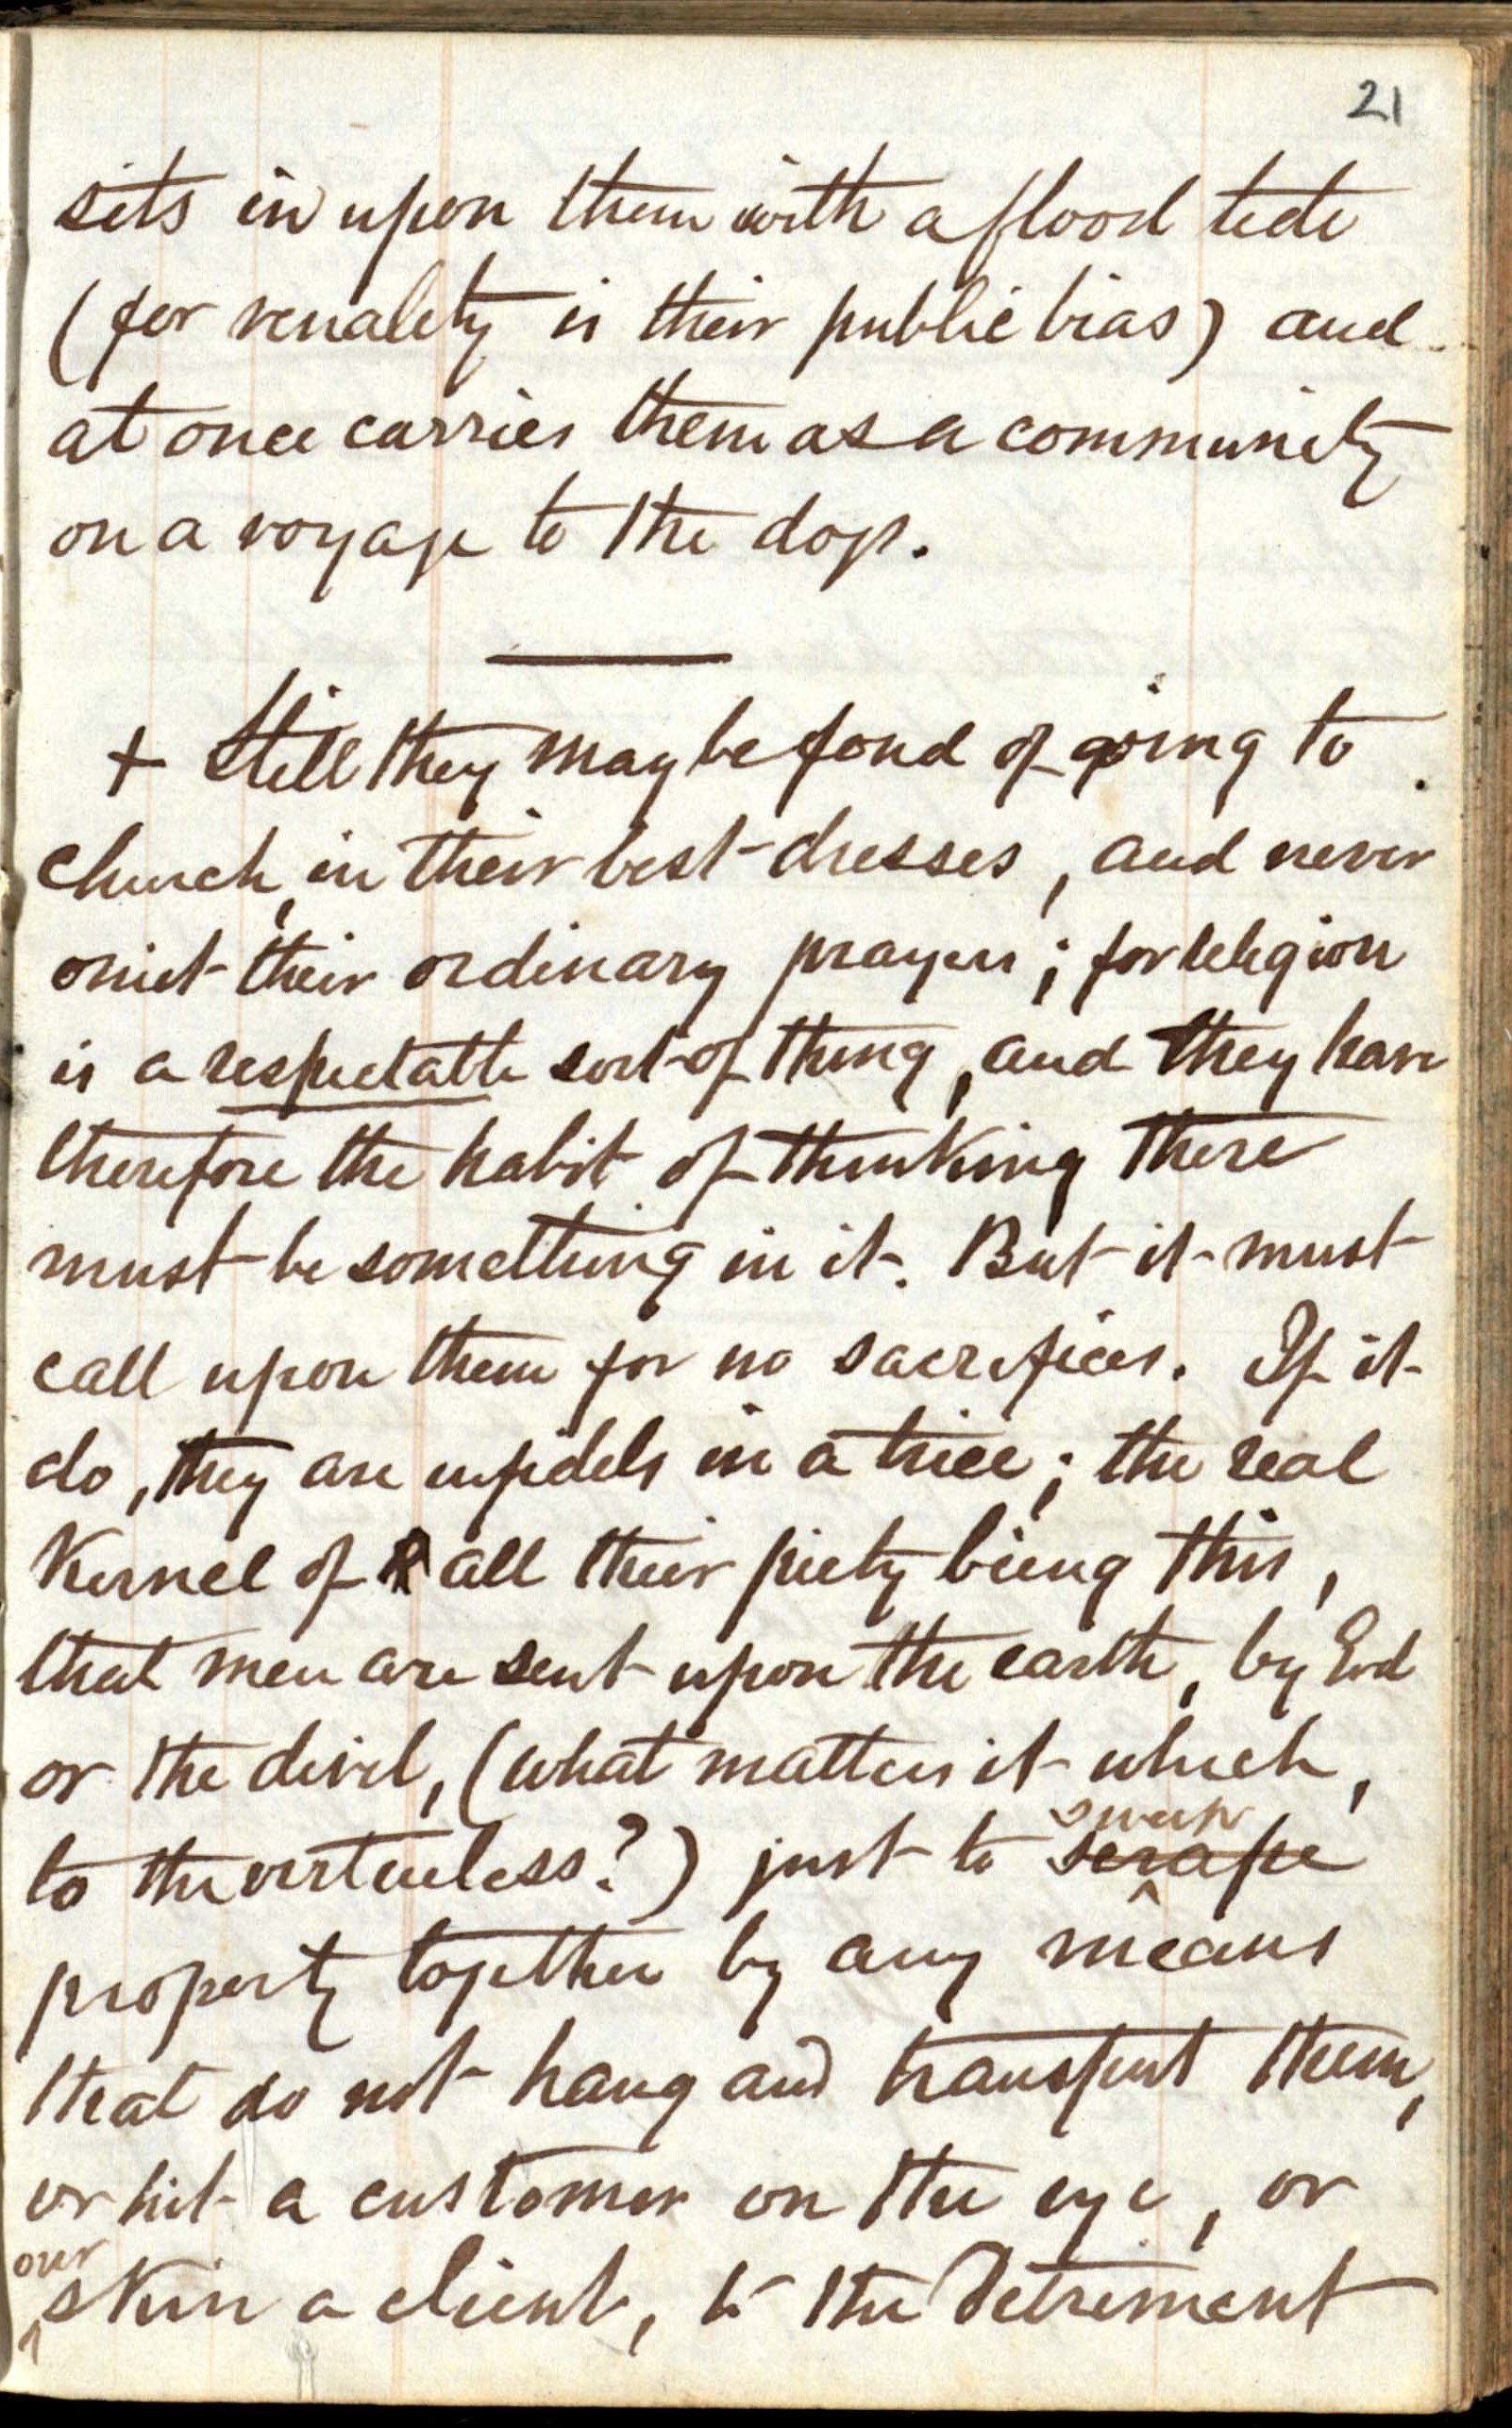 21
sets in upon them with a flood tide
(for venality is their public bias) and
at once carries them as a community
on a voyage to the dogs.
+ Still they may be fond of going to
church, in their best dresses, and never
omit their ordinary prayers; for religion
is a respectable sort of thing, and they have
therefore the habit of thinking there
must be something in it. But it must
call upon them for no sacrifices. If it
do, they are infidels in a trice; the real
Kernel of all their piety being this,
that men are sent upon the earth, by God
or the devil, (what matters it which,
sweep
to the virtueless?) just to scrape
property together by any means
that do not hang and transport them,
or hit a customer on the eye, or
over
skin a client, to the detriment